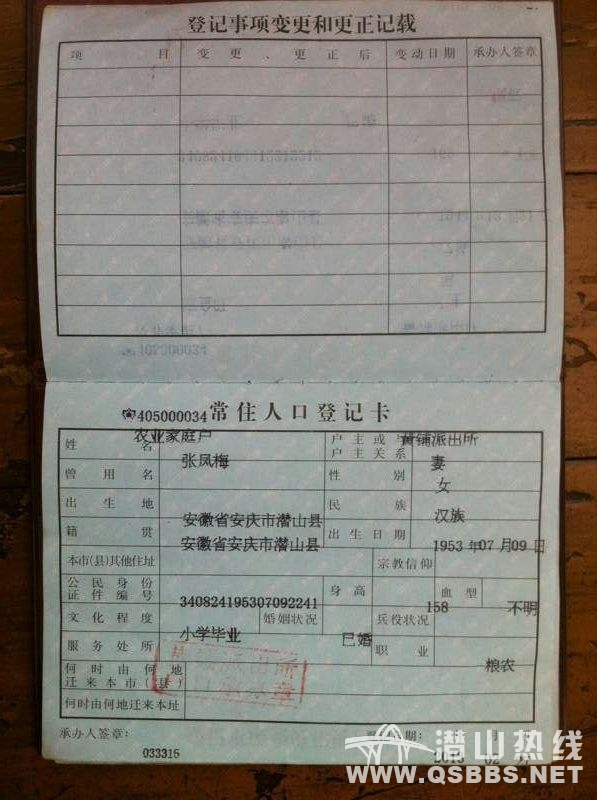 登记事项变更和更正记载
项 目 变 更 、 更 正 后 变动日期 承办人签章
405000034 常住人口登记卡
农业家庭户 黄铺派出所
姓名 张凤梅 户主或与户主关系 妻
曾用名 性别 女
出生地 安徽省安庆市潜山县 民族 汉族
籍贯 安徽省安庆市潜山县 出生日期 1953 年07 月09 日
本市(县)其他住址 宗教信仰
公民身份证件编号 340824195307092241 身高 158 血型 不明
文化程度 小学毕业 婚姻状况 已婚 兵役状况
服务处所 职业 粮农
何时由何地迁来本市(县)
何时由何地迁来本址
承办人签章: 日期:
033315
潜山热线
WWW.QSBBS.NET